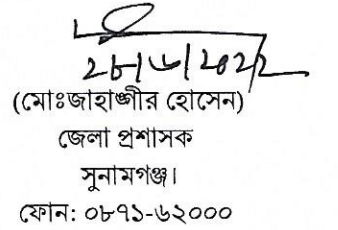 ২৮/৬/২০২২
(মোঃজাহাঙ্গীর হোসেন)
জেলা প্রশাসক
সুনামগঞ্জ।
ফোন: ০৮৭১-৬২০০০